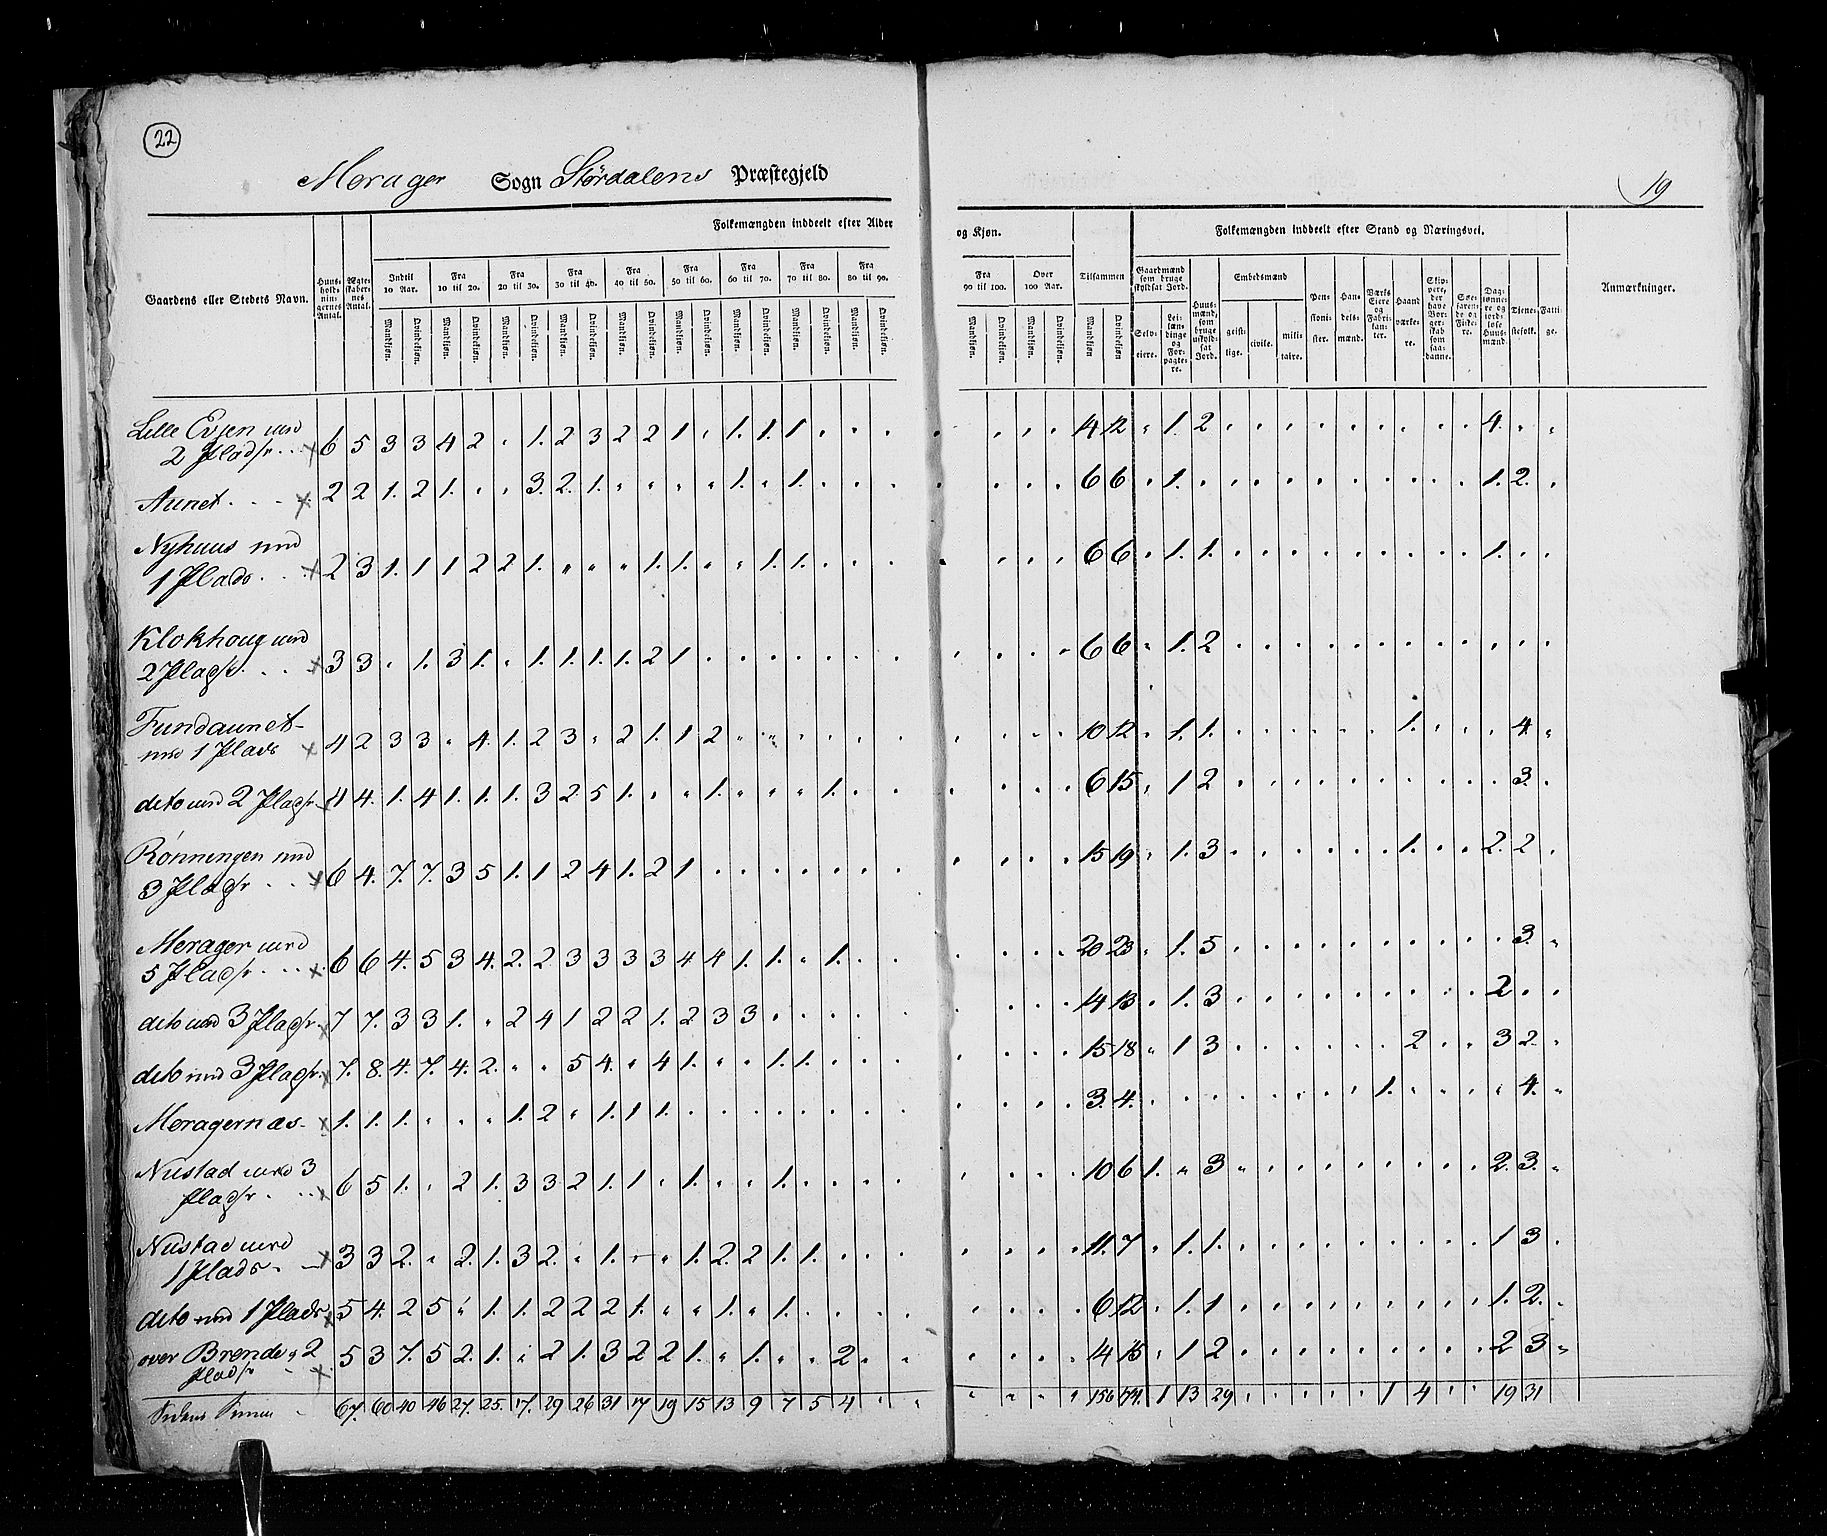 22
Merager Sogn Størdalens Præstegjeld
19
Folkemængden inddeelt efter Alder og Kjøn. Folkemængden inddeelt efter Stand og Næringsvei.
Gaardens eller Stedets Navn. Huusholdningernes Antal. Ægteskabernes Antal. Indtil 10 Aar. Fra 10 til 20. Fra 20 til 30. Fra 30 til 40. Fra 40 til 50. Fra 50 til 60. Fra 60 til 70. Fra 70 til 80. Fra 80 til 90. Fra 90 til 100. Over 100 Aar. Tilsammen Gaardmænd som bruge skyldsat Jord. Huusmænd, som bruge uskyldsat Jord. Embedsmænd Pensionister. Handelsmænd. Værks Eiere og Fabrikanter. Haandværkere. Skippere, der have Borgerskab som saadanne. Søefarende og Fiskere. Daglønnere og jordløse Huusmænd. Tjenestefolk. Fattige. Anmærkninger.
Mandkjøn. Qvindekjøn. Mandkjøn. Qvindekjøn. Mandkjøn. Qvindekjøn. Mandkjøn. Qvindekjøn. Mandkjøn. Qvindekjøn. Mandkjøn. Qvindekjøn. Mandkjøn. Qvindekjøn. Mandkjøn. Qvindekjøn. Mandkjøn. Qvindekjøn. Mandkjøn. Qvindekjøn. Mandkjøn. Qvindekjøn. Mandkjøn Qvindekjøn Selveiere. Leilændinge og Forpagtere. geistlige. civile. militaire.
Lille Evjen med
2 Pladse x 6 5 3 3 4 2 . 1. 2 3 2 2 1 . 1. 1. 1 . . . . . . . 14 12 . 1. 2 . . . . . . . . . 4. . .
Aunet x 2 2 1. 2 1. . . 3. 2. 1. . . . . 1. . 1. . . . . . . . 6 6 . 1. . . . . . . . . . . 1. 2. .
Nyhuus med
1 Plads x 2 3 1. 1 1 2 2 1. . . . 1. 1. . . 1. 1. . . . . . . . 6 6 . 1. 1. . . . . . . . . . 1. . .
Klokhoug med
2 Pladse x 3 3 . 1. 3 1. . 1. 1. 1. 1. 2 1 . . . . . . . . . . . 6 6 . 1. 2 . . . . . . . . . . . .
Fundaunet
med 1 Plads x 4 2 3 3 . 4. 1. 2 3 . 2 1. 1 2 . . . . . . . . . . 10 12 . 1. 1. . . . . . . 1. . . . 4. .
dito med 2 Pladse x 4 4. 1. 4 1. 1. 1. 3 2. 5 1. . . 1. . . . 1. . . . . . . 6 15 . 1 2 . . . . . . . . . . 3. .
Rønningen med
3 Pladse x 6 4. 7. 7. 3 5 1. 1 2 4 1. 2 1 . . . . . . . . . . . 15 19 . 1. 3 . . . . . . 1. . . 2. 2 .
Merager med
5 Pladse x 6 6 4. 5 3 4. 2. 2. 3 3 3 3 4 4 1. 1. . 1. . . . . . . 20 23 . 1. 5 . . . . . . . . . . 3. .
dito med 3 Pladse x 7 7. 3 3 1. . 2 4 1 2 2 1. 2 3 3 . . . . . . . . . 14 13 . 1. 3 . . . . . . . . . 2 . .
dito med 3 Pladse x 7. 8. 4. 7. 4. 2. . . 5 4. . 4 1. . . 1. 1. . . . . . . . 15 18 . 1 3 . . . . . . 2 . . 3 2. .
Meragernæs x 1. 1. 1. . . . 1. 2 . 1. 1 1. . . . . . . . . . . . . 3. 4. . . . . . . . . 1. . . . . 4. .
Nustad med 3
Pladse x 6 5 1. . 2 1. 3 3 2 1. 1 . 1. . . 1. . . . . . . . . 10 6 1. . 3 . . . . . . . . . 2. 3. .
Nustad med
1 Plads x 3 3 2. . 2. 1. 3 2. . 1. . . 1. 2. 2 1. 1. . . . . . . . 11. 7 . 1. 1. . . . . . . . . . 1 3 .
dito med 1 Plads x 5 4. 2 5 . 1. 1. 2 2 2 1. . . 1. . 1. . . . . . . . . 6 12 . 1. 1 . . . . . . . . . 1. 2. .
over Brende " 2
Pladse x 5 3 7. 5 2. 1. . 2 1. 3 2 2 1. . 1. . . 2 . . . . . . 14 15 . 1 2 . . . . . . . . . 2 3 .
Sidens Summa 67. 60 40 46 27. 25. 17. 29 26 31 17 19 15 13 9 7 5 4 . . . . . . 156 174. 1 13 29 . . . . . 1 4 . . 19 31